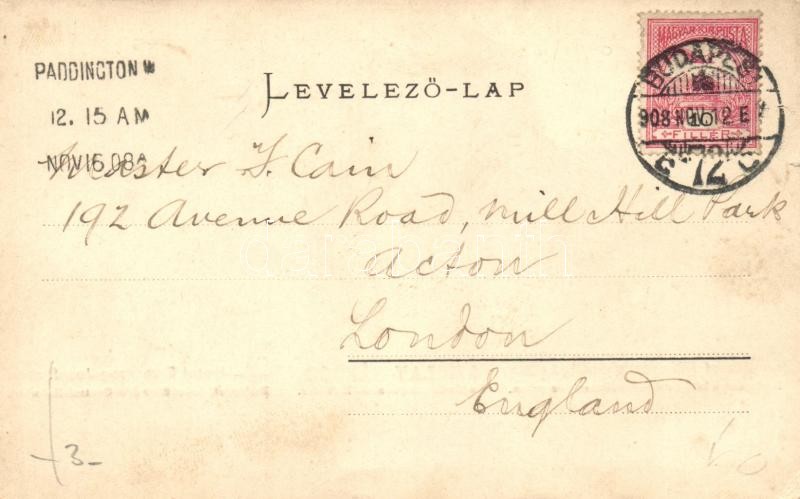 PADDINGTON W
12. 15 AM
NOV 16 08
LEVELEZŐ-LAP
MAGYAR KIR. POSTA
10
FILLÉR
BUDAPEST
908 NOV. 12 E
72
Master J. Cain
192 Avenue Road, Mill Hill Park
Acton
London
England
3-